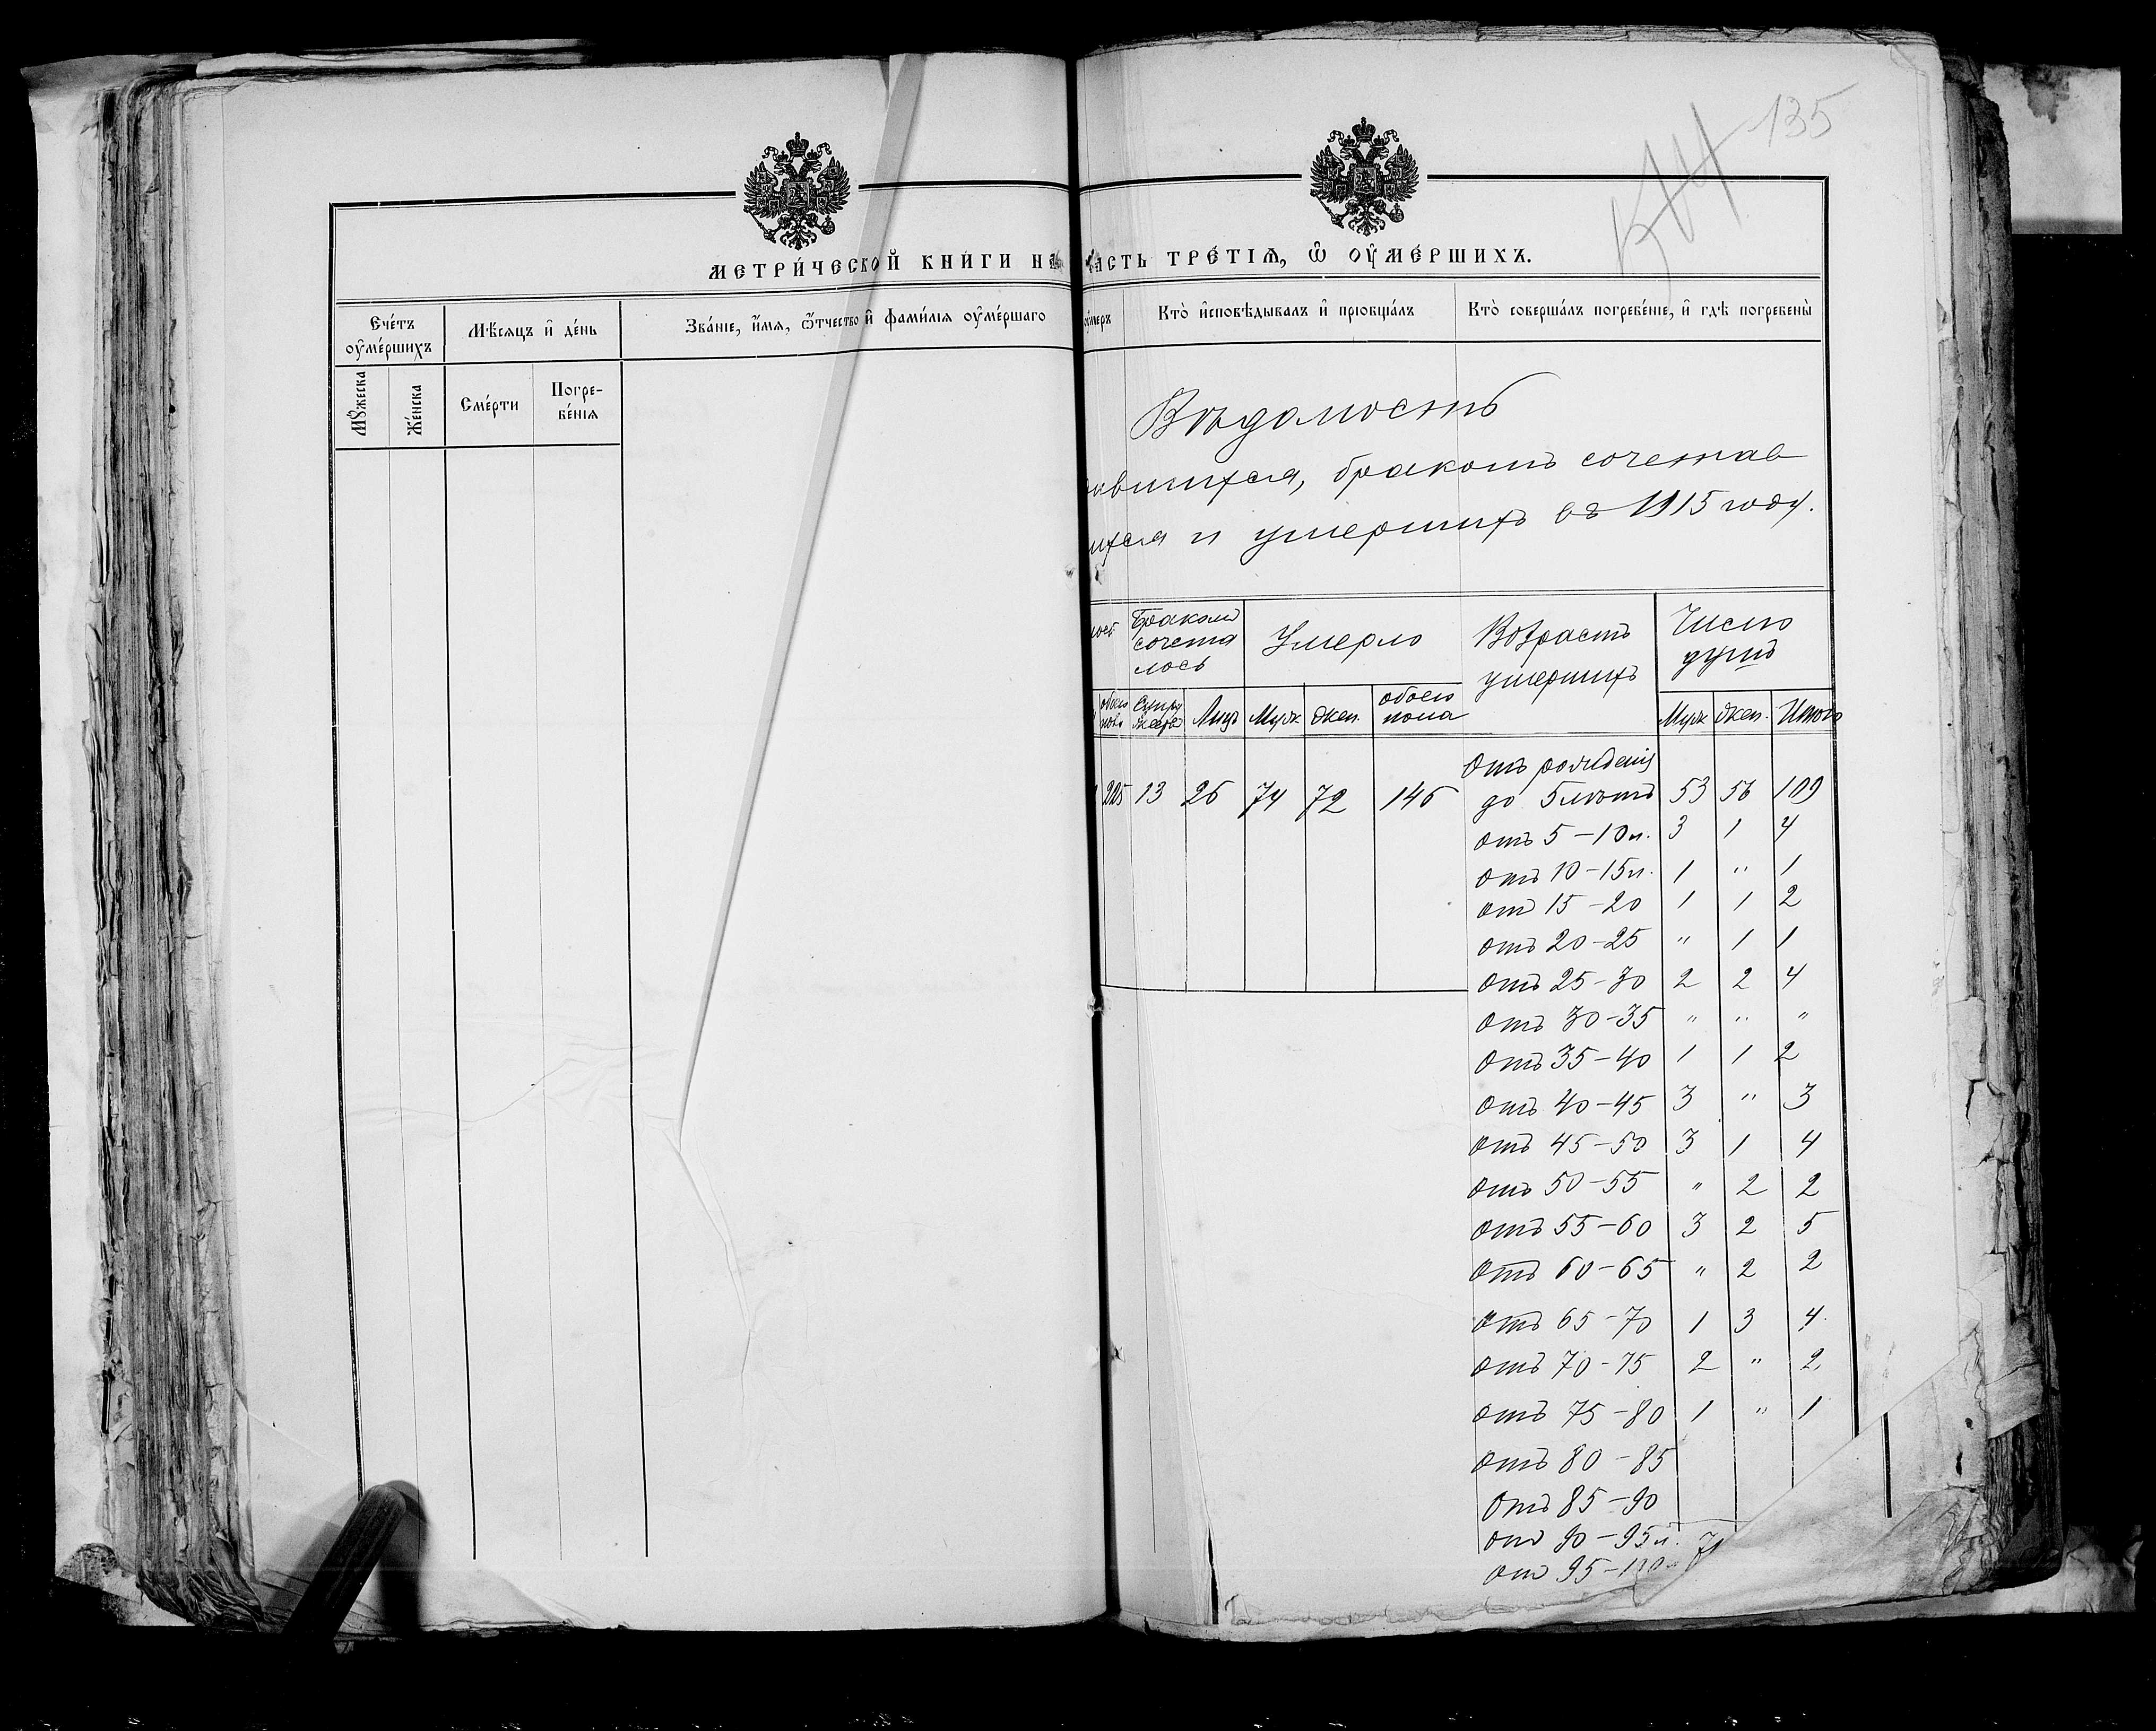 135
МЕТРИ́ЧЕСКОЙ КНИ́ГИ НА
ЧАСТЬ ТРЕ́ТІѦ, Ѽ ОУ҆МЕ́РШИХЪ.
Сче́тъ оу҆ме́ршихъ
Мѣ́сяцъ и҆ де́нь
Зва́ніе, и҆́мя, ѻ҆́тчество и҆ фами́лія оу҆ме́ршаго
оу҆́меръ
Кто̀ и҆сповѣ́дывалъ и҆ пріобща́лъ
Кто̀ соверша́лъ погребе́ніе, и҆ гдѣ̀ погребены̀
Мꙋ́жеска
Же́нска
Сме́рти
Погре-
бе́нія
Вѣдомость
вшихся, бракомъ сочетав
ихся и умершихъ въ 1915 году.
лось
Бракомъ
сочета
лось
Умерло
Возрастъ
умершихъ
Число
душъ
обоего
пола
Супру
жествъ
Лицъ
Муж
жен.
обоего
пола
Муж
жен.
Итого
Отъ рожденія
225 13 26 74 72 146 до 5 лѣтъ 53 56 109
отъ 5-10 л. 3 1 4
отъ 10-15 л. 1 " 1
от 15-20 1 1 2
отъ 20-25 " 1 1
Отъ 25-30 2 2 4
Отъ 30-35 " " "
Отъ 35-40 1 1 2
Отъ 40-45 3 " 3
Отъ 45-50 3 1 4
Отъ 50-55 " 2 2
Отъ 55-60 3 2 5
Отъ 60-65 " 2 2
Отъ 65-70 1 3 4
Отъ 70-75 2 " 2
Отъ 75-80 1 " 1
Отъ 80-85
Отъ 85-90
От 90-95 л.
От 95-100